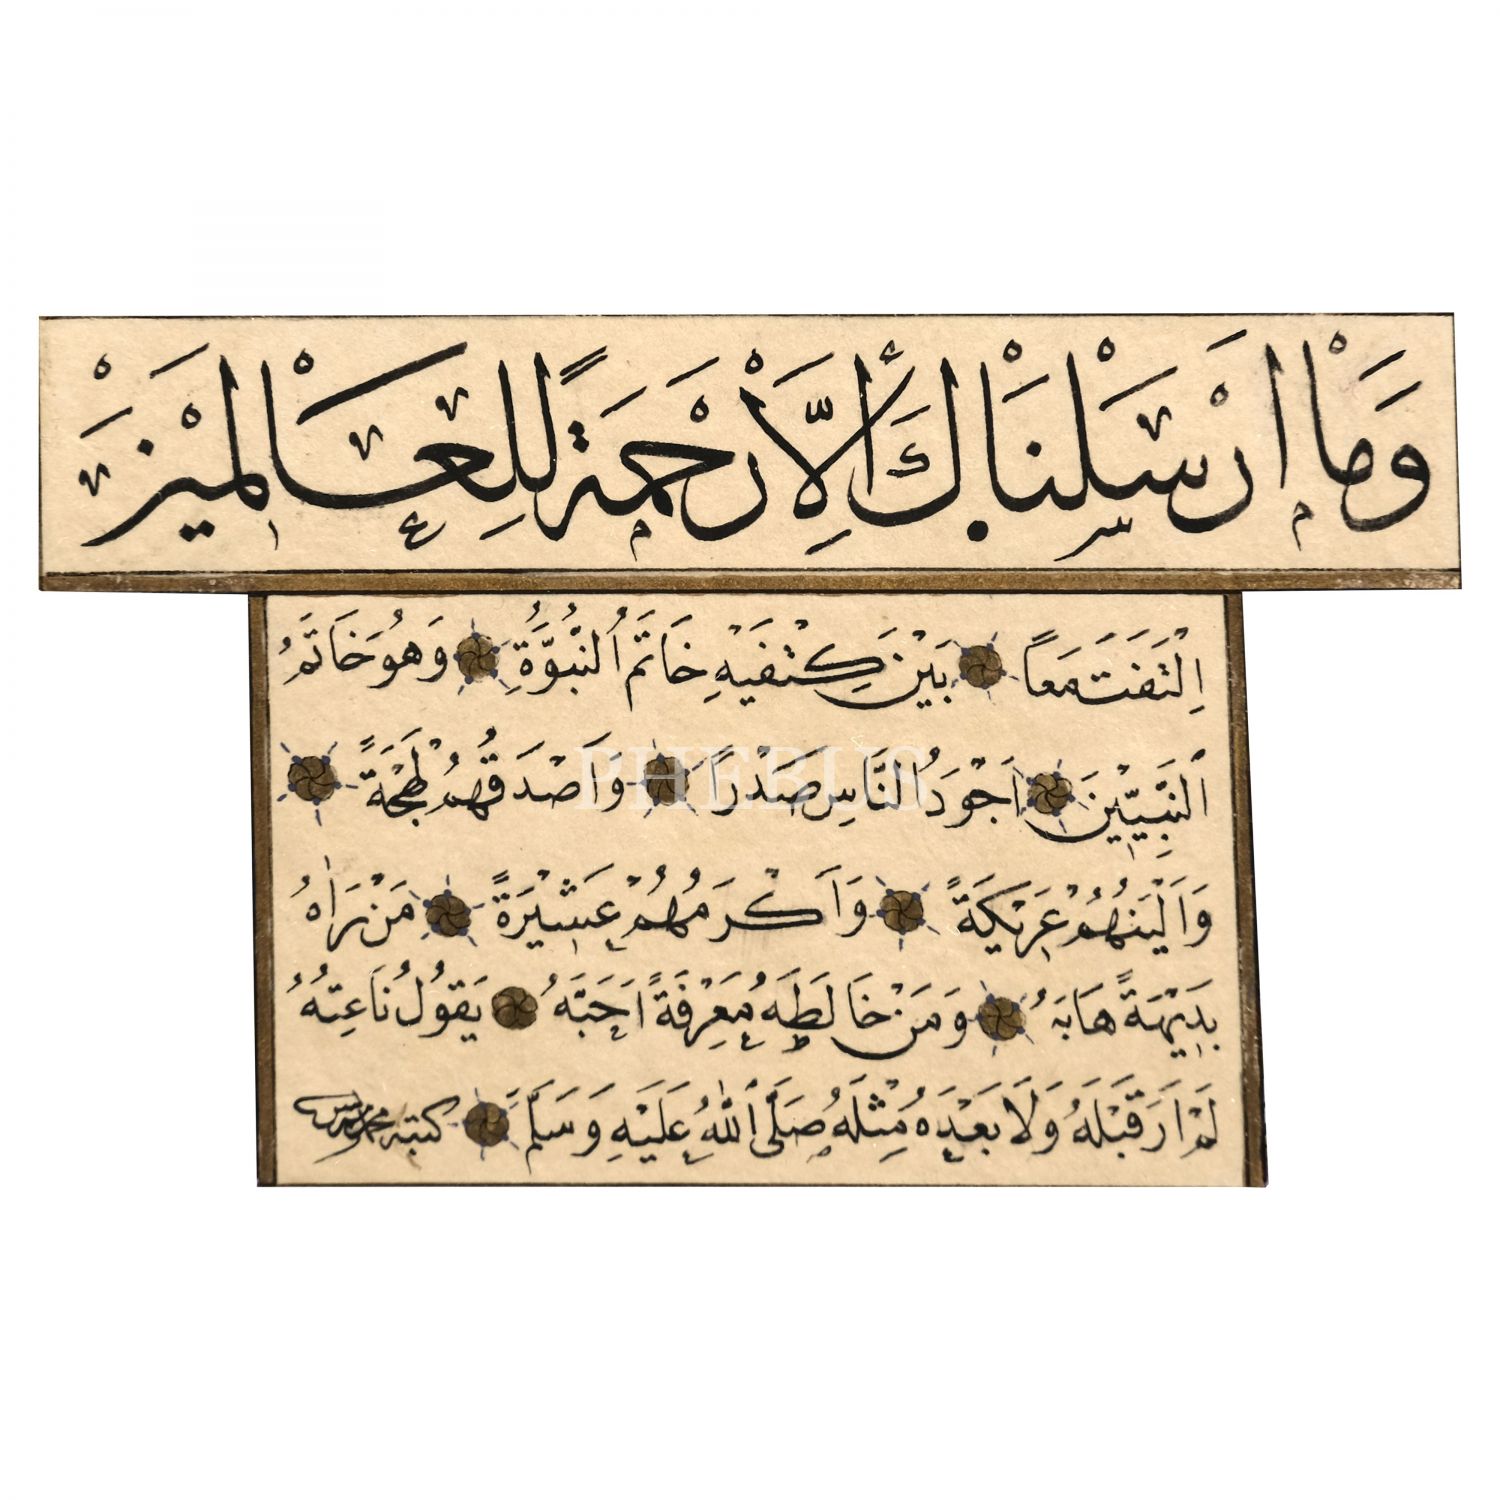 وَمَا اَرْسَلْنَاكَ اِلَّا رَحْمَةً لِلْعَالَمِينَ
اِلْتَفَتَ مَعًا بَيْنَ كَتِفَيْهِ خَاتَمُ النُّبُوَّةِ وَهُوَ خَاتَمُ
النَّبِيِّينَ اَجْوَدُ النَّاسِ صَدْرًا وَاَصْدَقُهُمْ لَهْجَةً
وَاَلْيَنُهُمْ عَرِيكَةً وَاَكْرَمُهُمْ عَشِيْرَةً مَنْ رَاٰهُ
بَدِيهَةً هَابَهُ وَمَنْ خَالَطَهُ مَعْرِفَةً اَحَبَّهُ يَقُولُ نَاعِتُهُ
لَمْ اَرَ قَبْلَهُ وَلَا بَعْدَهُ مِثْلَهُ صَلَّى اللهُ عَلَيْهِ وَسَلَّمَ كتبه محمد
PHEBUS